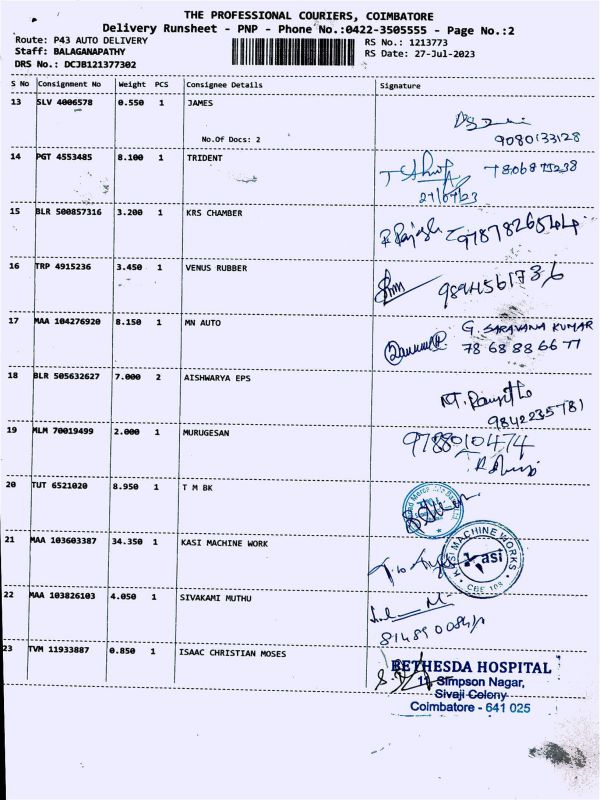 THE PROFESSIONAL COURIERS, COIMBATORE
Delivery Runsheet - PNP - Phone No.:0422-3505555 - Page No.:2
Route: P43 AUTO DELIVERY RS No.: 1213773
Staff: BALAGANAPATHY RS Date: 27-Jul-2023
DRS No.: DCJB121377302
S No Consignment No Weight PCS Consignee Details Signature
13 SLV 4006578 0.550 1 JAMES
No.Of Docs: 2
9080133128
14 PGT 4553485 8.100 1 TRIDENT
15 BLR 500857316 3.200 1 KRS CHAMBER
16 TRP 4915236 3.450 1 VENUS RUBBER
9894561736
17 MAA 104276920 8.150 1 MN AUTO
G. SARAVANA KUMAR
78 68 88 66 77
18 BLR 505632627 7.000 2 AISHWARYA EPS
9842235781
19 MLM 70019499 2.000 1 MURUGESAN
9788010474
20 TUT 6521020 8.950 1 T M BK
21 MAA 103603387 34.350 1 KASI MACHINE WORK
KASI MACHINE WORKS
Kasi
22 MAA 103826103 4.050 1 SIVAKAMI MUTHU
23 TVM 11933887 0.850 1 ISAAC CHRISTIAN MOSES
BETHESDA HOSPITAL
11 Simpson Nagar,
Sivaji Colony
Coimbatore - 641 025